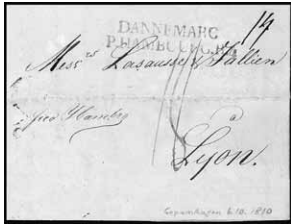 14
DANNEMARC
P. HAMBOURG
Mess.rs Lasausse & Tallien
pied Hambro
à
Lyon.
Copenhagen 6.10.1810